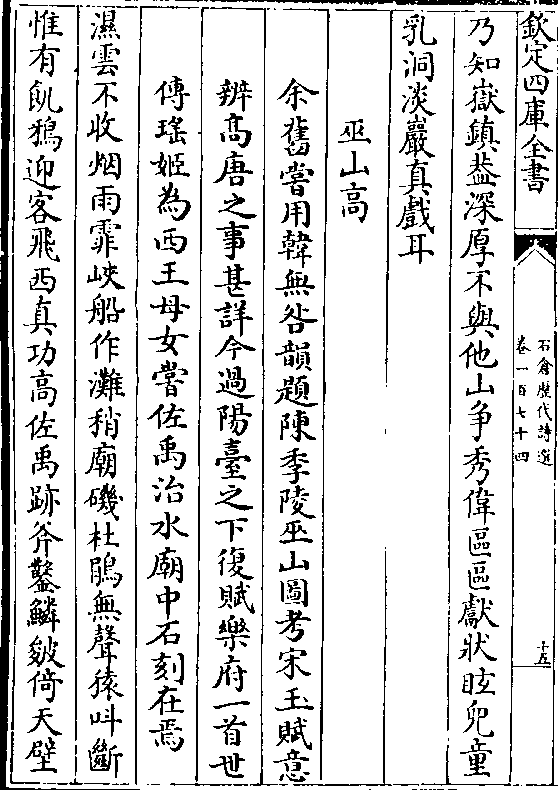 欽定四庫全書
石倉歷代詩選
卷一百七十四
十五
乃知嶽鎮葢深厚不與他山争秀偉區區獻狀眩兒童
乳洞淡巖真戲耳
巫山高
余舊嘗用韓無咎韻題陳季陵巫山圖考宋玉賦意
辨髙唐之事甚詳今過陽臺之下復賦樂府一首世
傳瑤姬為西王母女嘗佐禹治水廟中石刻在焉
濕雲不收烟雨霏峽船作灘稍廟磯杜鵑無聲猿叫斷
惟有飢鵶迎客飛西真功高佐禹跡斧鑿鱗皴倚天壁